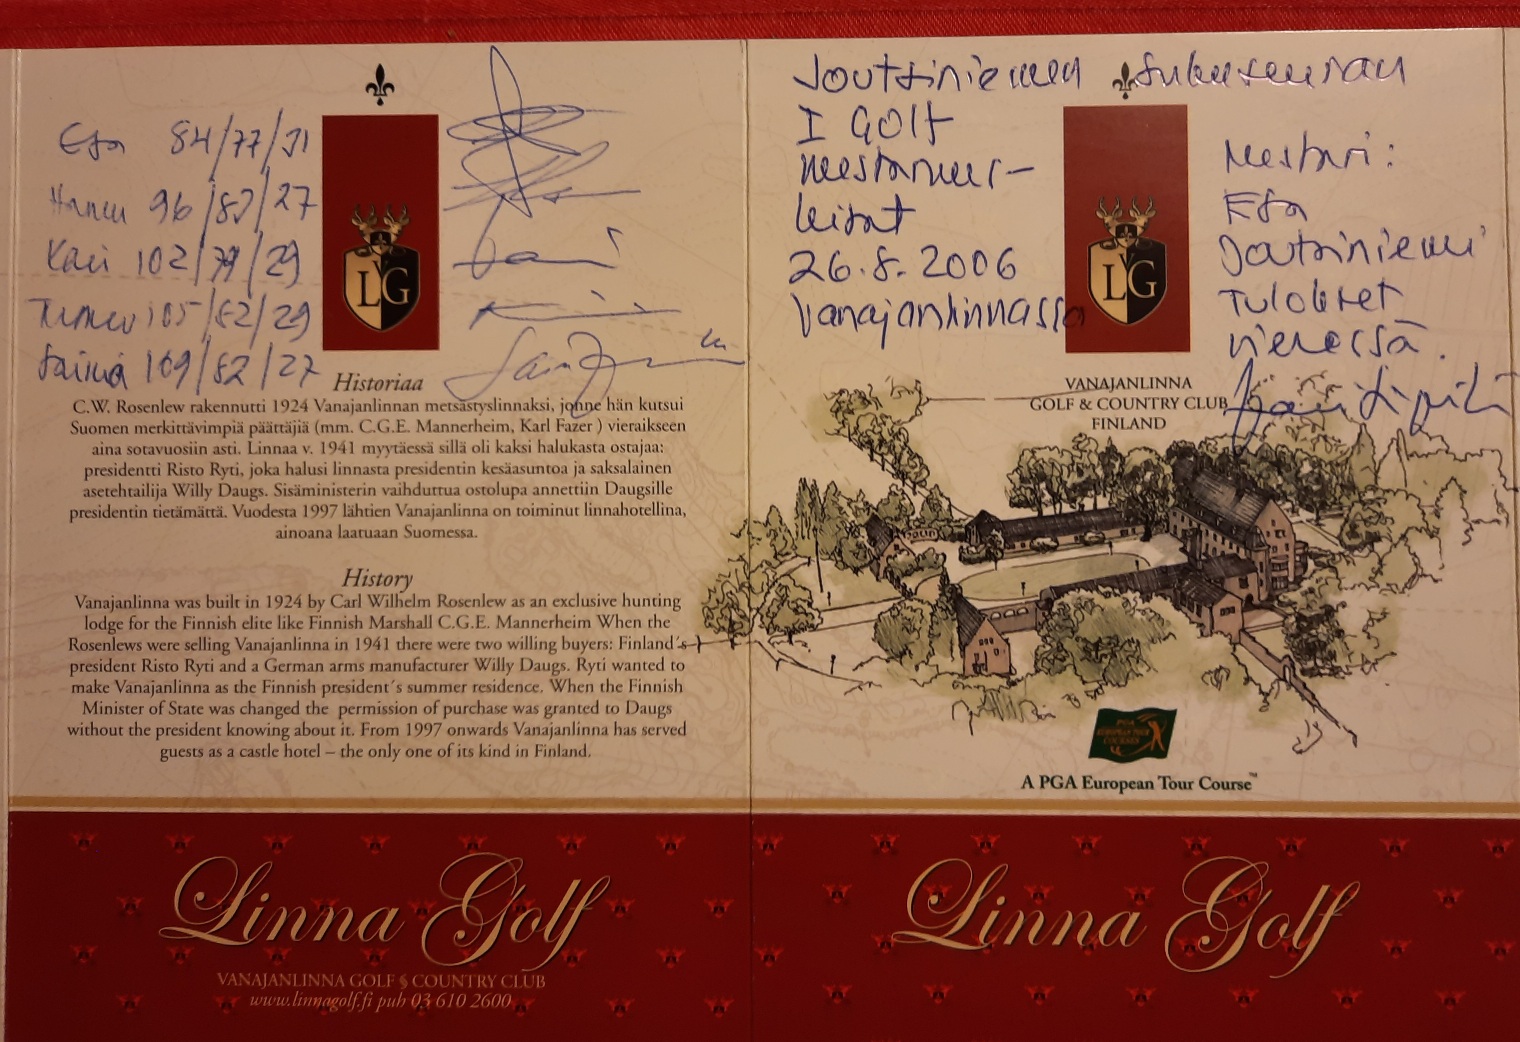 Esa 84/77/31
Hannu 96/83/27
Kari 102/79/29
105/82/29
109/82/27
LG
Historiaa
C.W. Rosenlew rakennutti 1924 Vanajanlinnan metsästyslinnaksi, jonne hän kutsui
Suomen merkittävimpiä päättäjiä (mm. C.G.E. Mannerheim, Karl Fazer ) vieraikseen
aina sotavuosiin asti. Linnaa v. 1941 myytäessä sillä oli kaksi halukasta ostajaa:
presidentti Risto Ryti, joka halusi linnasta presidentin kesäasuntoa ja saksalainen
asetehtailija Willy Daugs. Sisäministerin vaihduttua ostolupa annettiin Daugsille
presidentin tietämättä. Vuodesta 1997 lähtien Vanajanlinna on toiminut linnahotellina,
ainoana laatuaan Suomessa.
History
Vanajanlinna was built in 1924 by Carl Wilhelm Rosenlew as an exclusive hunting
lodge for the Finnish elite like Finnish Marshall C.G.E. Mannerheim When the
Rosenlews were selling Vanajanlinna in 1941 there were two willing buyers: Finland´s
president Risto Ryti and a German arms manufacturer Willy Daugs. Ryti wanted to
make Vanajanlinna as the Finnish president´s summer residence. When the Finnish
Minister of State was changed the permission of purchase was granted to Daugs
without the president knowing about it. From 1997 onwards Vanajanlinna has served
guests as a castle hotel – the only one of its kind in Finland.
Linna Golf
VANAJANLINNA GOLF § COUNTRY CLUB
www.linnagolf.fi puh 03 610 2600
Joutsiniemen Sukuseuran
I Golf
mestaruus-
kisat
26.8.2006
Vanajanlinnassa
Mestari:
Esa
Joutsiniemi
Tulokset
vieressä.
LG
VANAJANLINNA
GOLF & COUNTRY CLUB
FINLAND
PGA
EUROPEAN TOUR
COURSES
A PGA European Tour Course™
Linna Golf